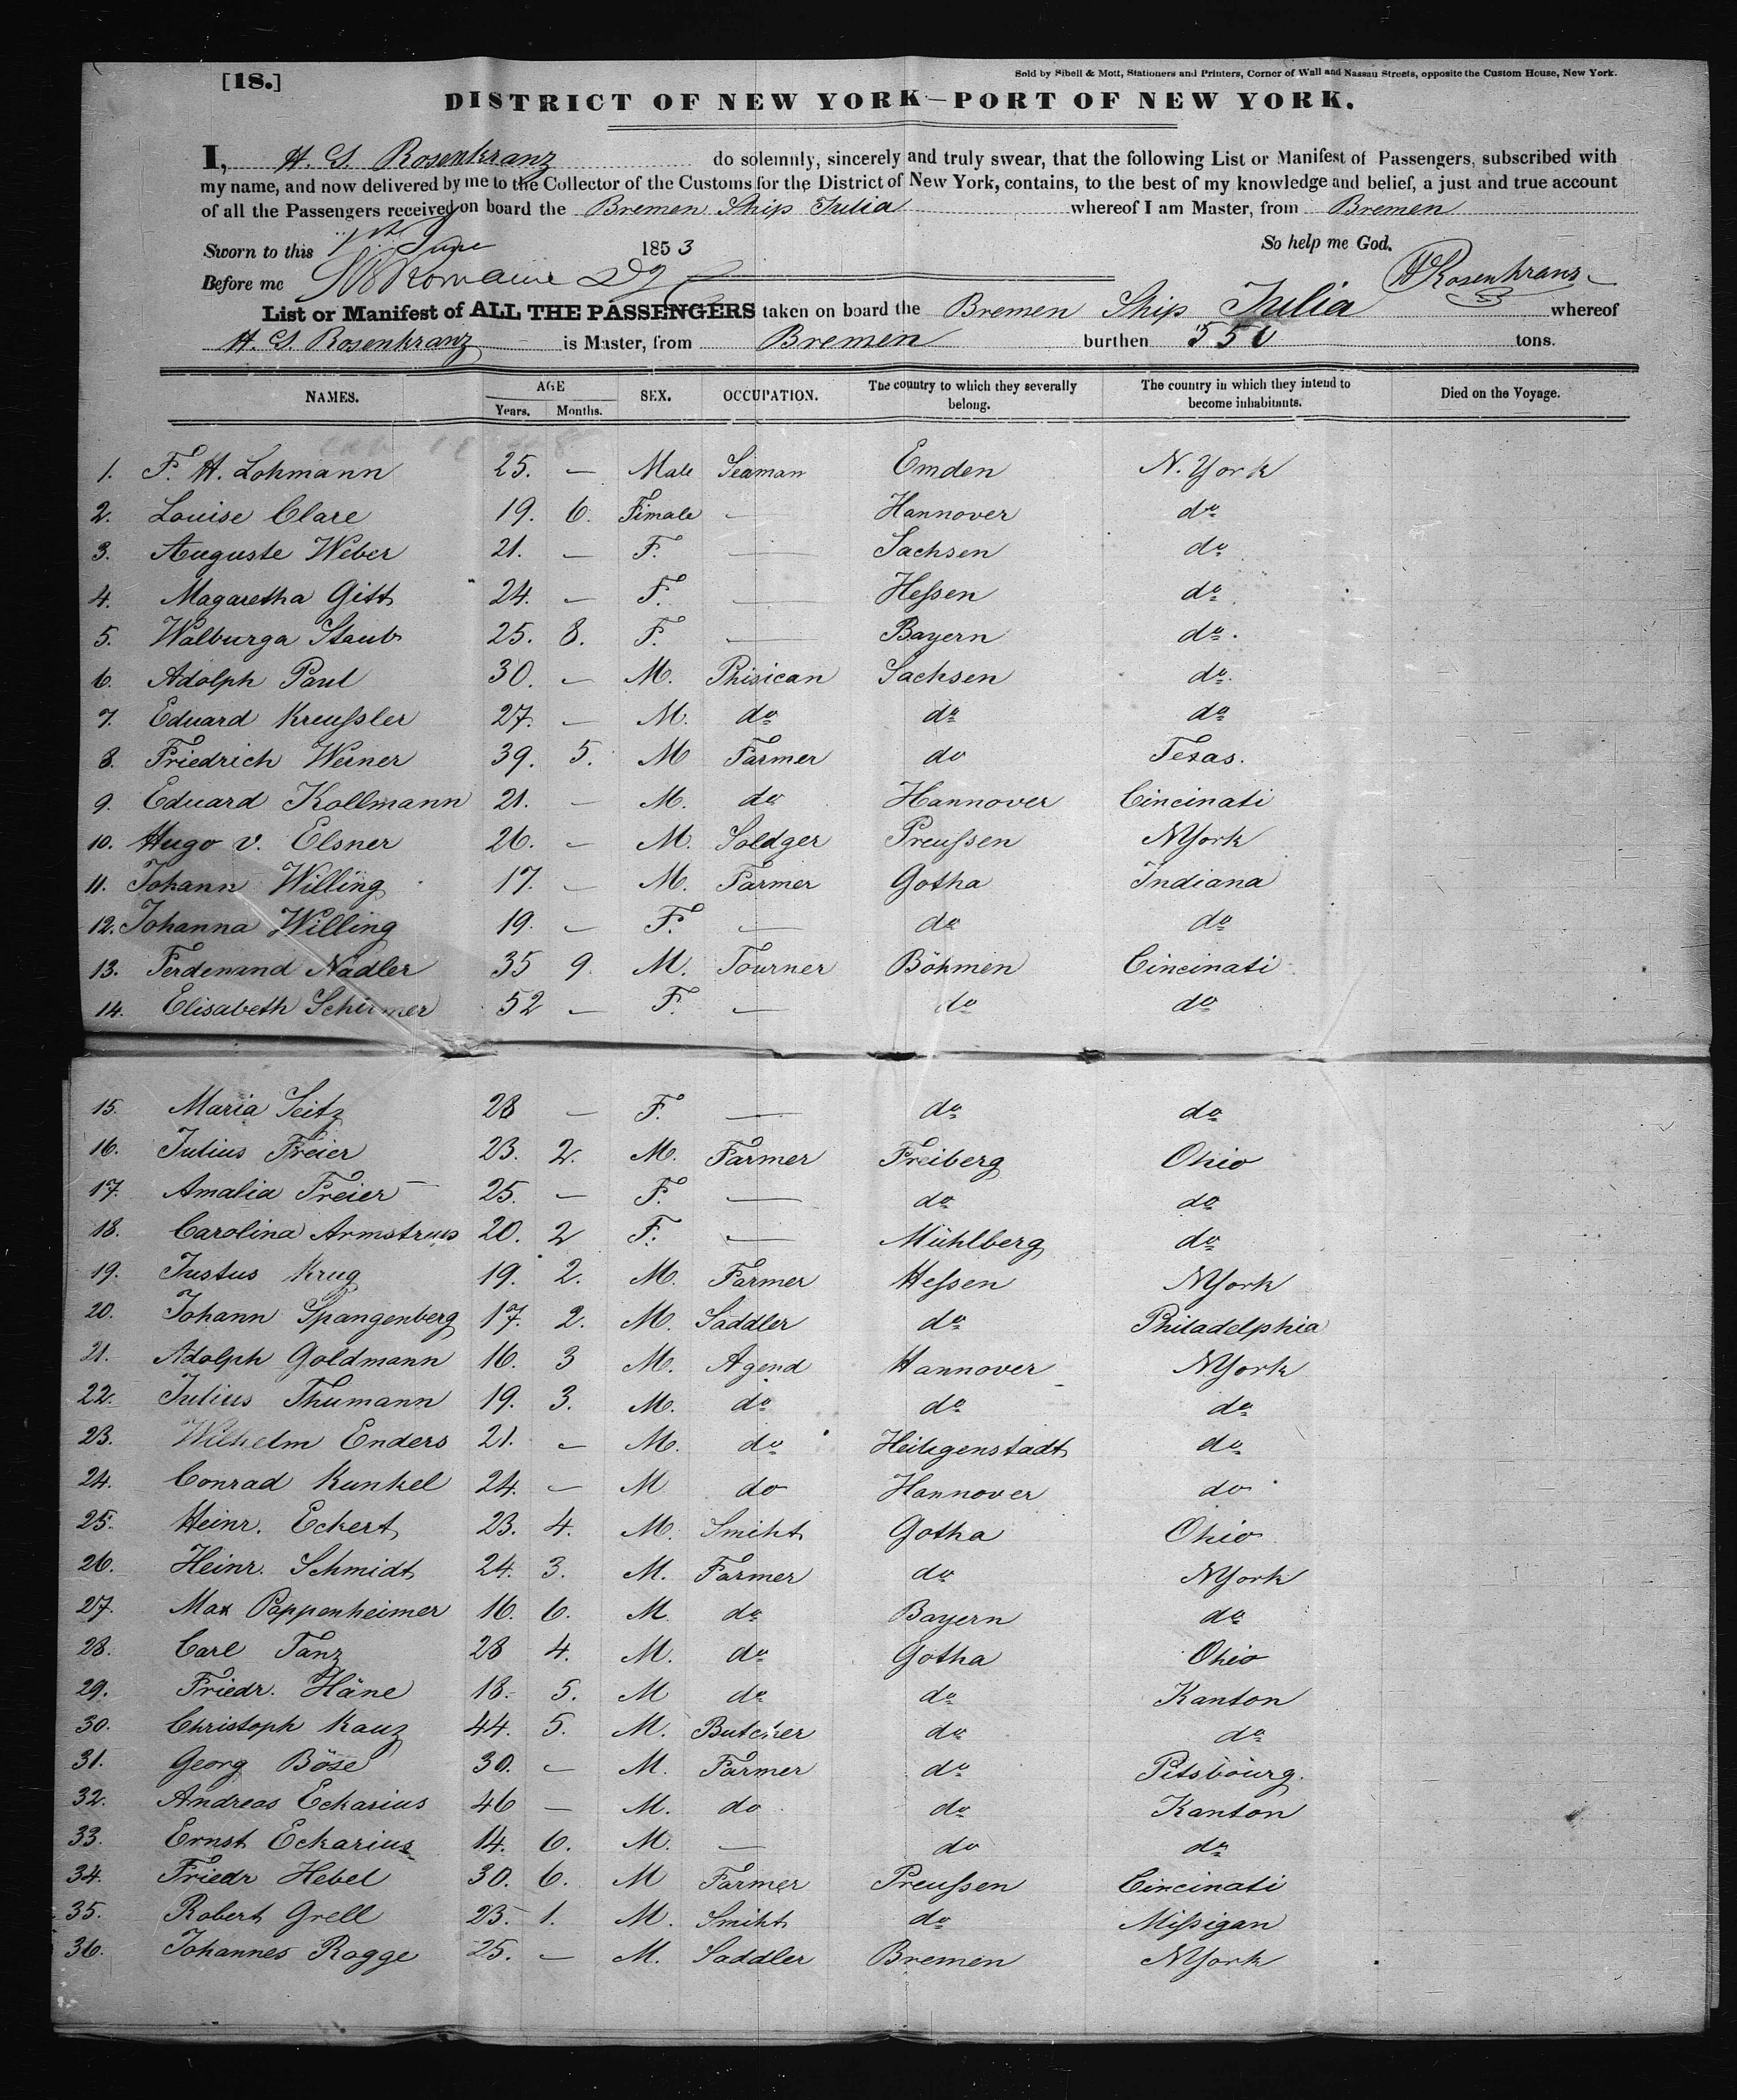 [18.]
Sold by Sibell & Mott, Stationers and Printers, Corner of Wall and Nassau Streets, opposite the Custom House, New York.
DISTRICT OF NEW YORK—PORT OF NEW YORK.
I, H. G. Rosenkranz do solemnly, sincerely and truly swear, that the following List or Manifest of Passengers, subscribed with
my name, and now delivered by me to the Collector of the Customs for the District of New York, contains, to the best of my knowledge and belief, a just and true account
of all the Passengers received on board the Bremen Ship Julia whereof I am Master, from Bremen
Sworn to this 1st June 1853 So help me God.
Before me Romaine HRosenkranz
List or Manifest of ALL THE PASSENGERS taken on board the Bremen Ship Julia whereof
H. G. Rosenkranz is Master, from Bremen burthen 550 tons.
NAMES. AGE Years. Months. SEX. OCCUPATION. The country to which they severally belong. The country in which they intend to become inhabitants. Died on the Voyage.
1. F. H. Lohmann 25. — Male Seaman Emden N. York
2. Louise Clare 19. 6. Fimale — Hannover do
3. Auguste Weber 21. — F. — Sachsen do
4. Magaretha Gitt 24. — F. — Heſsen do
5. Walburga Staub 25. 8. F. — Bayern do.
6. Adolph Paul 30. — M. Phisican Sachsen do.
7. Eduard Kreuſsler 27. — M. do do do
8. Friedrich Werner 39. 5. M Farmer do Texas.
9. Eduard Kollmann 21. — M. do Hannover Cincinati
10. Hugo v. Elsner 26. — M. Soldger Preuſsen NYork
11. Johann Willing 17. — M. Farmer Gotha Indiana
12. Johanna Willing 19. — F. — do do
13. Ferdenand Nadler 35 9. M. Tourner Böhmen Cincinati
14. Elisabeth Schirmer 52 — F. — do do
15. Maria Seitz 28 — F. — do do
16. Julius Freier 23. 2. M. Farmer Freiberg Ohio
17. Amalia Freier 25. — F. — do do
18. Carolina 20. 2 F. — Mühlberg do
19. Justus Krug 19. 2. M. Farmer Heſsen NYork
20. Johann Spangenberg 17. 2. M. Saddler do Philadelphia
21. Adolph Goldmann 16. 3 M. Agend Hannover NYork
22. Julius Thumann 19. 3. M. do do do
23. Wilhelm Enders 21. — M. do Heiligenstadt do
24. Conrad Kunkel 24. — M do Hannover do
25. Heinr. Eckert 23. 4. M. Smiht Gotha Ohio
26. Heinr. Schmidt 24. 3. M. Farmer do NYork
27. Max Pappenheimer 16. 6. M. do Bayern do
28. Carl Tanz 28 4. M. do Gotha Ohio
29. Friedr. Häne 18. 5. M do do Kanton
30. Christoph Kauz 44. 5. M. Butcher do do
31. Georg Böse 30. — M. Farmer do Pitsbourg.
32. Andreas Eckarius 46 — M. do do Kanton
33. Ernst Eckarius 14. 6. M. — do do
34. Friedr Hebel 30. 6. M Farmer Preuſsen Cincinati
35. Robert Grell 23. 1. M. Smiht do Miſsigan
36. Johannes Rogge 25. — M. Saddler Bremen NYork